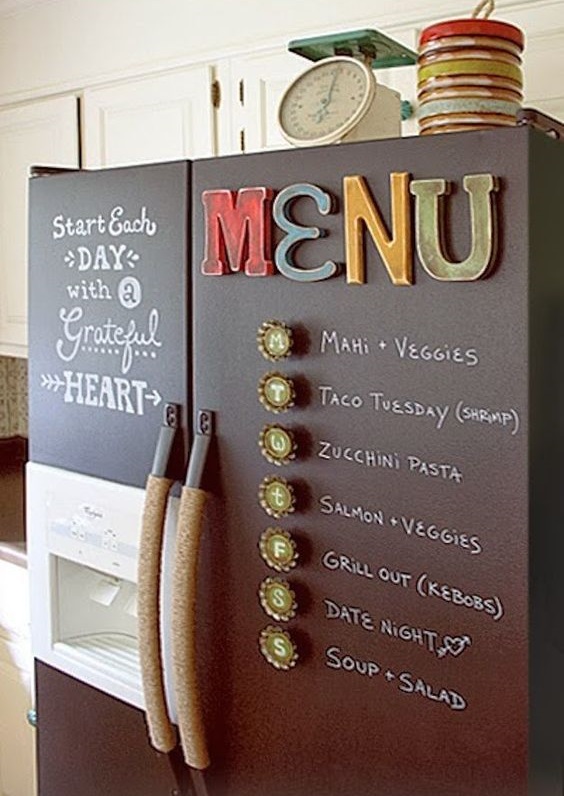 Start Each
DAY
with a
Grateful
HEART
MENU
M MAHI + VEGGIES
T TACO TUESDAY (SHRIMP)
W ZUCCHINI PASTA
t SALMON + VEGGIES
F GRILL OUT (KEBOBS)
S DATE NIGHT
S SOUP + SALAD
Whirlpool